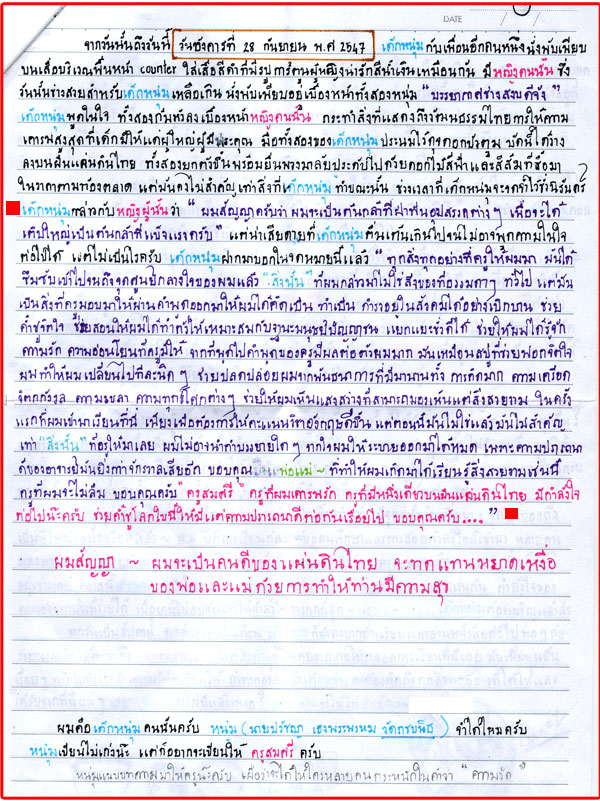 DATE
จากวันนั้นถึงวันนี้ วันอังคารที่ 28 กันยายน พ.ศ 2547 เด็กหนุ่มกับเพื่อนอีกคนหนึ่งนั่งพับเพียบ
บนเสื่อบริเวณพื้นหน้า counter ใส่เสื้อสีดำที่มีรูปการ์ตูนผู้หญิงน่ารักสีน้ำเงินเหมือนกัน มีหญิงคนนั้น ซึ่ง
วันนั้นช่างสวยสำหรับเด็กหนุ่มเหลือเกิน นั่งพับเพียบอยู่เบื้องหน้าทั้งสองหนุ่ม "บรรยากาศช่างสงบดีจัง"
เด็กหนุ่มพูดในใจ ทั้งสองก้มกราบลงเบื้องหน้าหญิงคนนั้น กระทำสิ่งที่แสดงถึงวัฒนธรรมไทยการให้ความ
เคารพสูงสุดที่เด็กมีให้แด่ผู้ใหญ่ผู้มีพระคุณ มือทั้งสองของเด็กหนุ่มประนมไว้ดุจดอกปทุม บัดนี้ได้วาง
ลงบนพื้นแผ่นดินไทย ทั้งสองยกตัวขึ้นพร้อมยื่นพวงมาลัยประดับไปด้วยดอกไม้สีฟ้าและสีส้มที่ซื้อมา
ในราคาตามท้องตลาด แต่มันคงไม่สำคัญเท่าสิ่งที่เด็กหนุ่มทำขณะนั้น ช่วงเวลาที่เด็กหนุ่มจะจดจำไว้ชั่วนิรันดร์
เด็กหนุ่มกล่าวกับหญิงผู้นั้นว่า "ผมสัญญาครับว่า ผมจะเป็นต้นกล้าที่ฝ่าฟันอุปสรรคต่างๆ เพื่อจะได้
เติบใหญ่เป็นต้นกล้าที่แข็งแรงครับ" แต่น่าเสียดายที่เด็กหนุ่มตื่นเต้นเกินไปจนไม่อาจพูดความในใจ
ต่อไปได้ แต่ไม่เป็นไรครับ เด็กหนุ่มฝากมาบอกในจดหมายนี้แล้ว "ทุกสิ่งทุกอย่างที่ครูให้ผมมา มันได้
ซึมซับเข้าไปจนถึงจุดศูนย์กลางใจของผมแล้ว "สิ่งนั้น" ที่ผมกล่าวมาไม่ใช่สิ่งของที่ธรรมดาๆ ทั่วไป แต่มัน
เป็นสิ่งที่ครูมอบมาให้ผ่านคำพูดออกมาให้ผมได้คิดเป็น ทำเป็น ดำรงอยู่ในสังคมได้อย่างเบิกบาน ช่วย
ค้ำชูจิตใจ ที่ช่วยสอนให้ผมได้ทำตัวให้เหมาะสมกับฐานะมนุษย์ปัญญาชน แยกแยะชั่วดีได้ ช่วยให้ผมได้รู้จัก
ความรัก ความอ่อนโยนที่ครูมีให้ จากที่พูดไปคำพูดของครูมีผลต่อตัวผมมาก มันเหมือนสบู่ที่ช่วยฟอกจิตใจ
ผมทำให้ผมเปลี่ยนไปทีละนิดๆ ช่วยปลดปล่อยผมจากพันธนาการที่มีมานานทั้ง การคิดมาก ความเครียด
วิตกกังวล ความเหงา ความทุกข์โศกต่างๆ ช่วยให้ผมเห็นแสงสว่างที่สามารถมองเห็นแต่สิ่งสวยงาม ในครั้ง
แรกที่ผมเข้ามาเรียนที่นี่ เพียงเพื่อต้องการให้คะแนนวิชาอังกฤษดีขึ้น แต่ตอนนี้มันไม่ใช่แล้วมันไม่สำคัญ
เท่า "สิ่งนั้น" ที่ครูให้มาเลย ผมไม่อาจนำคำบรรยายใดๆ จากใจผมให้ระบายออกมาได้หมด เพราะความปรารถนา
ดีของอาจารย์มันยิ่งกว่าจักรวาลเสียอีก ขอบคุณ พ่อแม่~ ที่ทำให้ผมเกิดมาได้เรียนรู้สิ่งสวยงามเช่นนี้
ครูที่ผมจะไม่ลืม ขอบคุณครับ "ครูสมศรี" ครูที่ผมเคารพรัก ครูที่มีหนึ่งเดียวบนผืนแผ่นดินไทย มีกำลังใจ
ต่อไปน๊ะครับ ช่วยค้ำชูโลกใบนี้ให้มีแต่ความปรารถนาดีต่อกันเรื่อยไป ขอบคุณครับ...."
ผมสัญญา ~ ผมจะเป็นคนดีของแผ่นดินไทย จะทดแทนหยาดเหงื่อ
ของพ่อและแม่ด้วยการทำให้ท่านมีความสุข
ผมคือเด็กหนุ่มคนนั้นครับ หนุ่ม (นายปรัชญา เฮงพระพรหม วัดราชบพิธ) จำได้ไหมครับ
หนุ่มเขียนไม่เก่งน๊ะ แต่ก็อยากจะเขียนให้ ครูสมศรี ครับ
หนุ่มแนบบทความมาให้ครูน๊ะครับ เผื่อว่าจะได้ให้ใครหลายคนตระหนักในคำว่า "ความรัก"